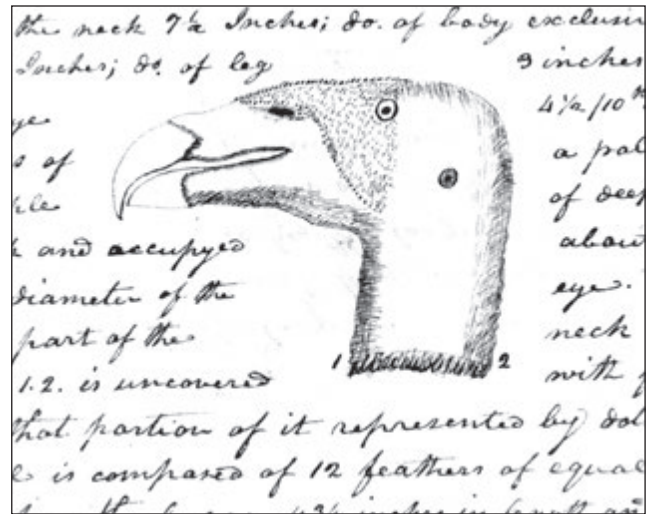 the neck 7½ Inches; do. of body exclusiv
Inches; do. of leg 3 inches
eye 4½/10th
s of a pal
ple of deep
k and occupyed about
diameter of the eye.
part of the neck
1 2
1.2. is uncovered with f
that portion of it represented by dot
e is composed of 12 feathers of equal
inches in length and